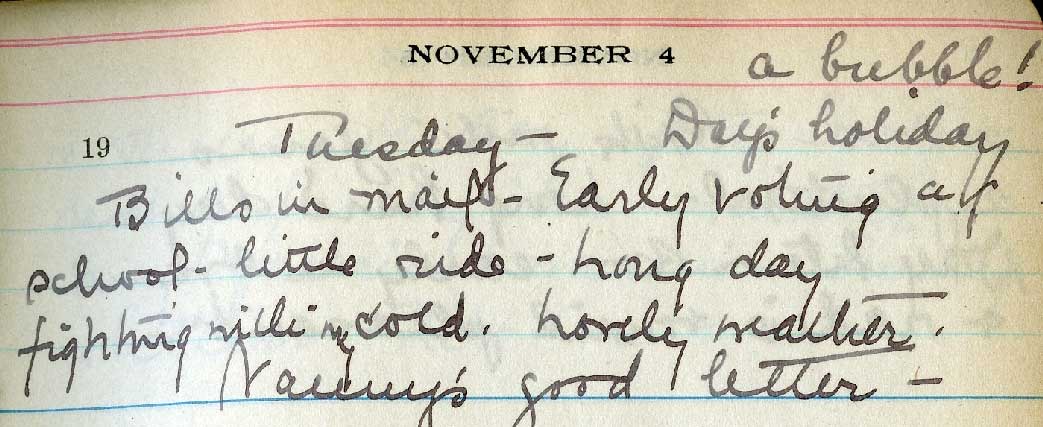 NOVEMBER 4
a bubble!
19 Tuesday - Day's holiday
Bills in mail - Early voting at
school - little ride - Long day
fighting with my cold. Lovely weather.
good letter -